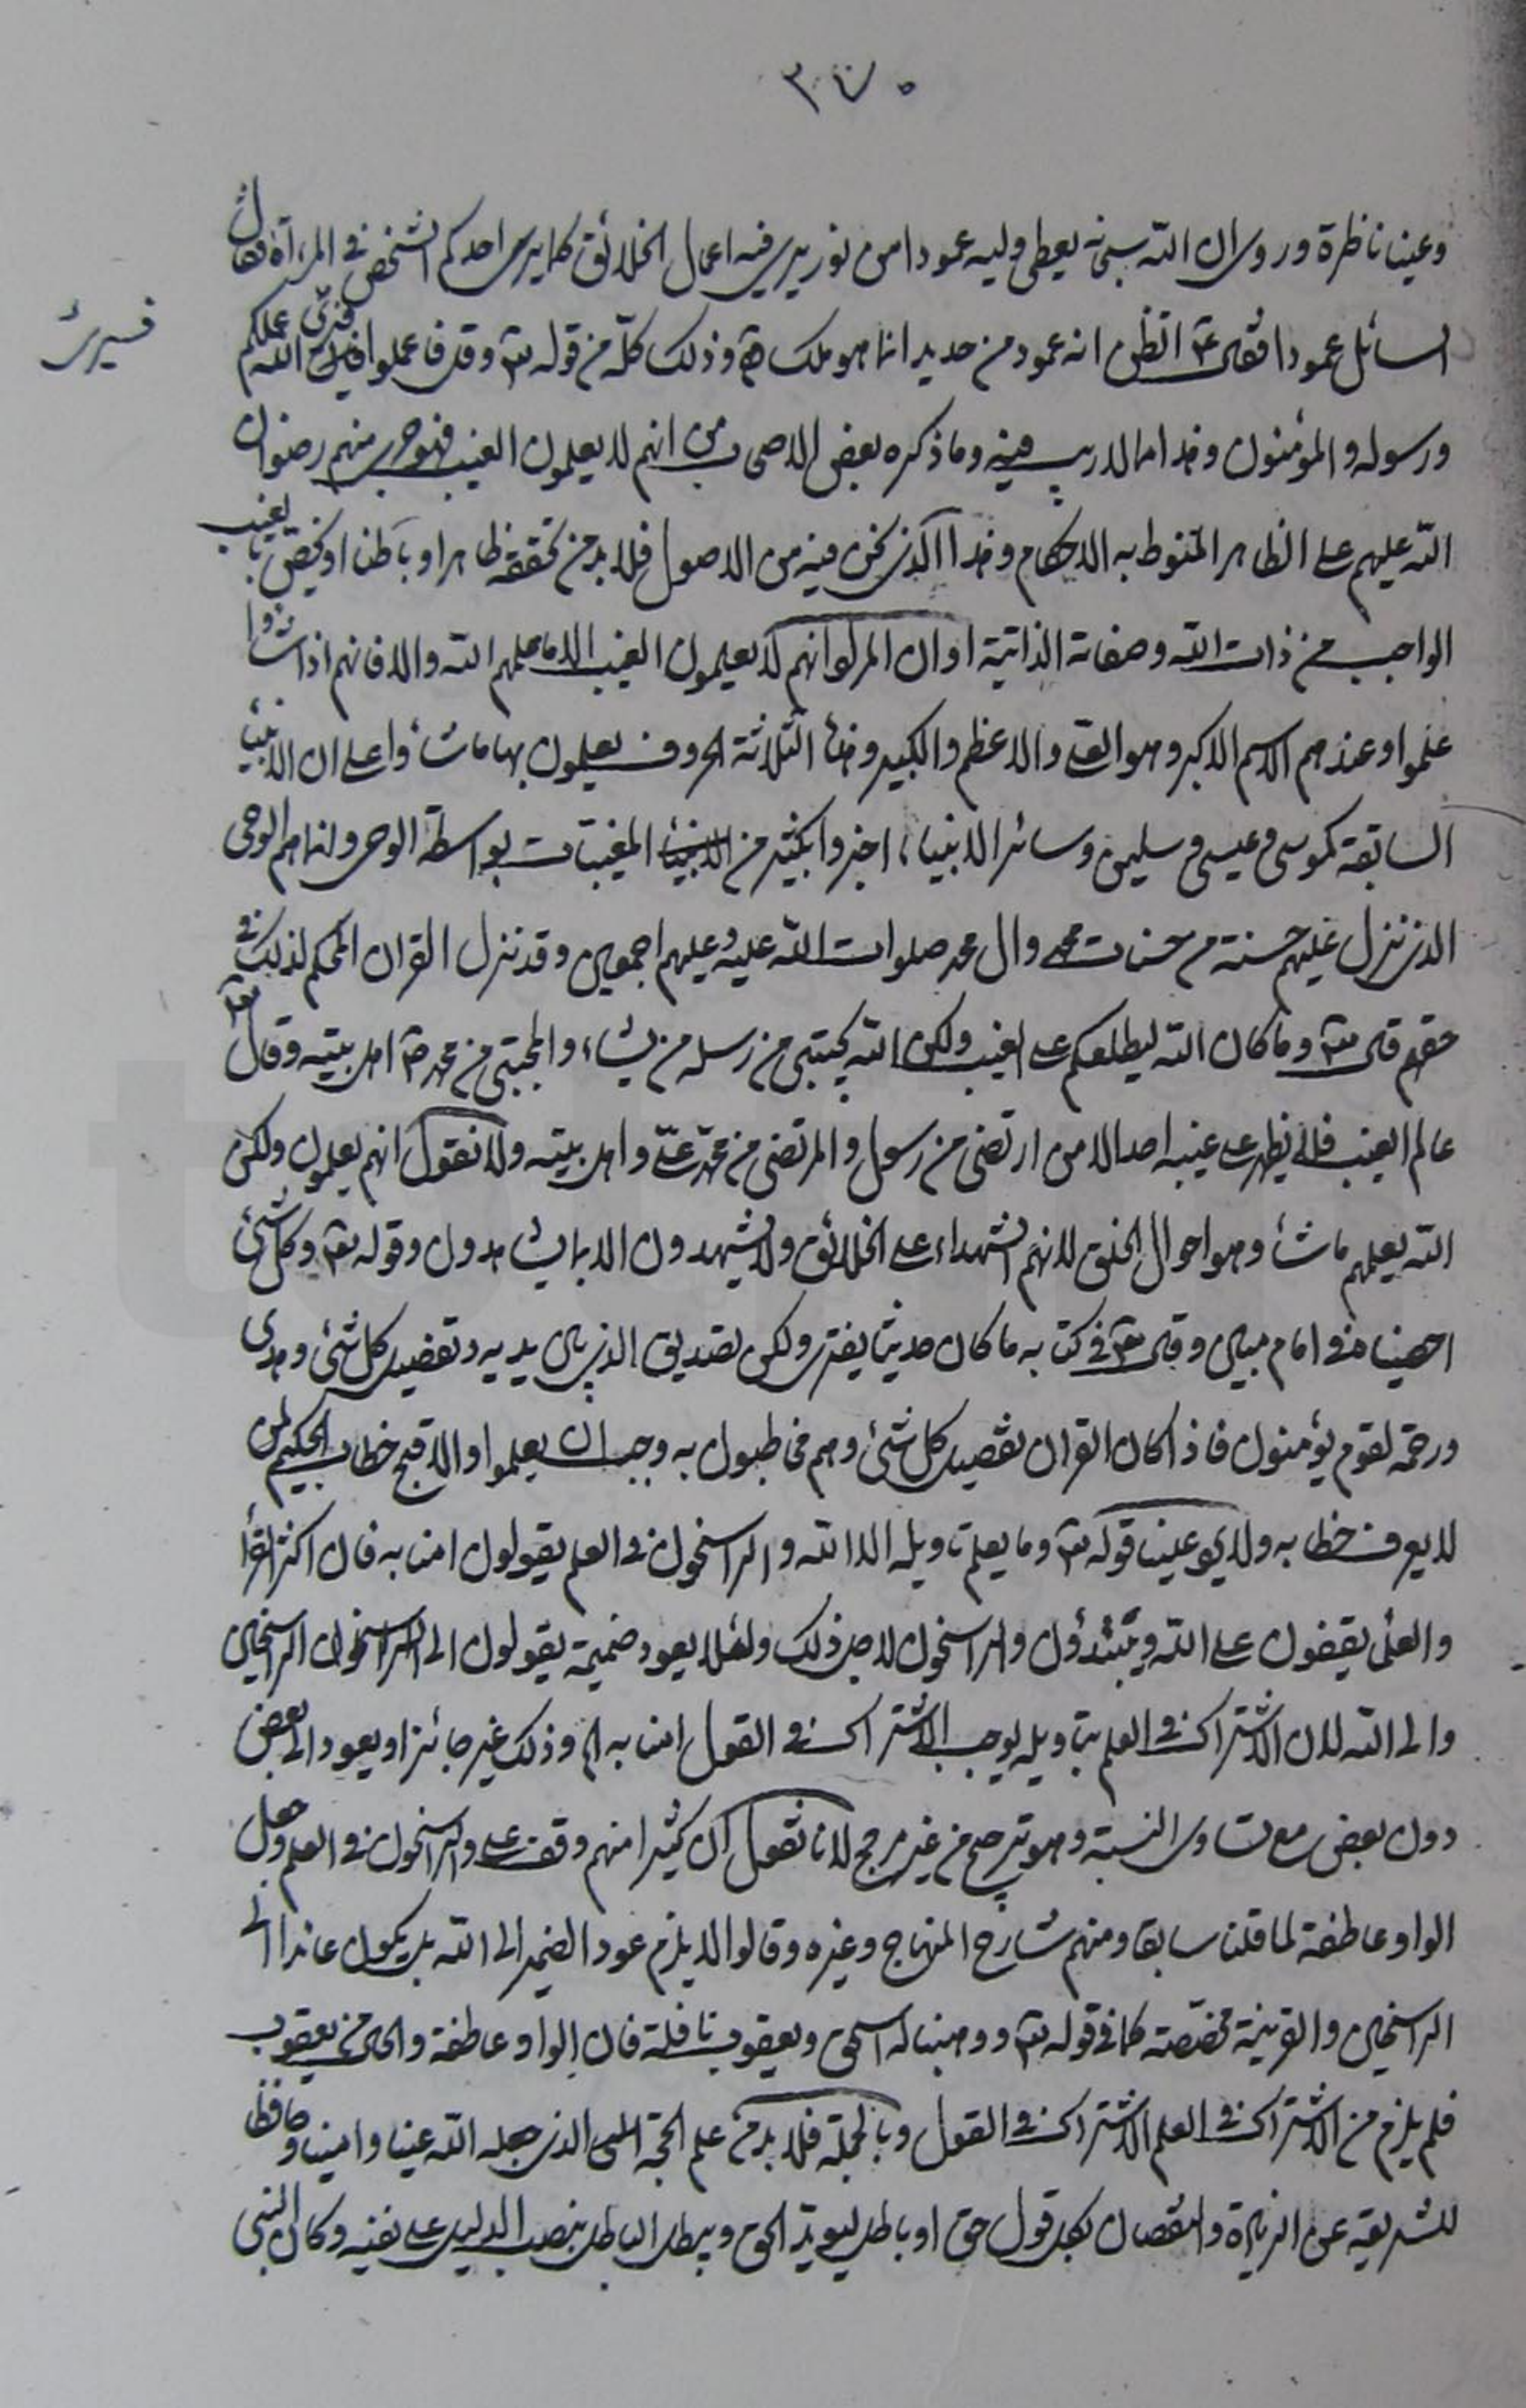 ٣٧٠
وعينا ناظرة وروى ان الله سبحنه يعطى وليه عمودا من نور يرى فيه اعمال الخلائق كما يرى احدكم الشخص فى المرءاة فقال
السائل عمودا فقال ع اتظن انه عمود من حديد انما هو ملك وذلك كله من قوله تع وقل اعملوا فسيرى الله عملكم
فسيرى
ورسوله والمؤمنون وهذا مما لا ريب فيه وما ذكره بعض الاصحاب من انهم لا يعلمون الغيب فهو جرى منهم رضوان
الله عليهم على الظاهر المنوط به الاحكام وهذا الذى نحن فيه من الاصول فلا بد من تحققه ظاهرا وباطنا او يختص بالغيب
الواجب من ذات الله وصفاته الذاتية او ان المراد انهم لا يعلمون الغيب الا ما علمهم الله والا فانهم اذا شاؤا
علموا وعندهم الاسم الاكبر وهو العلى والاعظم والكبير وهذه الثلاثة الحروف يعلمون بها ما شاؤا على ان الانبياء
السابقة كموسى وعيسى وسليمن وسائر الانبياء اخبروا بكثير من المغيبات بواسطة الوحى وانما هم الوحى
الذى نزل عليهم حسنة من حسنات محمد وال محمد صلوات الله عليه وعليهم اجمعين وقد نزل القران المحكم لذلك فى
حقهم قال تع وما كان الله ليطلعكم على الغيب ولكن الله يجتبى من رسله من يشاء والمجتبى من محمد ص اهل بيته وقال تع
عالم الغيب فلا يظهر على غيبه احدا الا من ارتضى من رسول والمرتضى من محمد على واهل بيته ولا نقول انهم يعلمون ولكن
الله يعلمهم ما شاء وهو احوال الخلق لانهم الشهداء على الخلائق ولا يشهدون الا بما يشاهدون وقوله تع وكل شىء
احصيناه فى امام مبين وقال تع فى كتابه ما كان حديثا يفترى ولكن تصديق الذى بين يديه وتفصيل كل شىء وهدى
ورحمة لقوم يؤمنون فاذا كان القران تفصيل كل شىء وهم مخاطبون به وجب ان يعلموا والا قبح خطاب الحكيم لمن
لا يعرف خطابه ولا علينا قوله تع وما يعلم تاويله الا الله والراسخون فى العلم يقولون امنا به فان اكثر القراء
والعلماء يقفون على الله ويبتدؤن والراسخون لاجل ذلك ولئلا يعود ضمير يقولون الى الراسخين
والى الله لان الاشتراك فى العلم بتاويله يوجب الاشتراك فى القول امنا به الخ وذلك غير جائز او يعود الى بعض
دون بعض مع تساوى النسبة وهو ترجيح من غير مرجح لانا نقول ان كثيرا منهم وقف على والراسخون فى العلم وجعل
الواو عاطفة لما قلنا سابقا ومنهم شارح المنهاج وغيره وقالوا لا يلزم عود الضمير الى الله بل يكون عائدا الى
الراسخين والقرينة مخصصة كما فى قوله تع ووهبنا له اسحق ويعقوب نافلة فان الواو عاطفة والحال من يعقوب
فلم يلزم من الاشتراك فى العلم الاشتراك فى القول وبالجملة فلا بد من علم الحجة الذى جعله الله عينا وامينا وحافظا
للشريعة عن الزيادة والنقصان بكل قول حق او باطل ليؤيد الحق ويبطل الباطل بنصب الدليل على نفيه وكان النبى